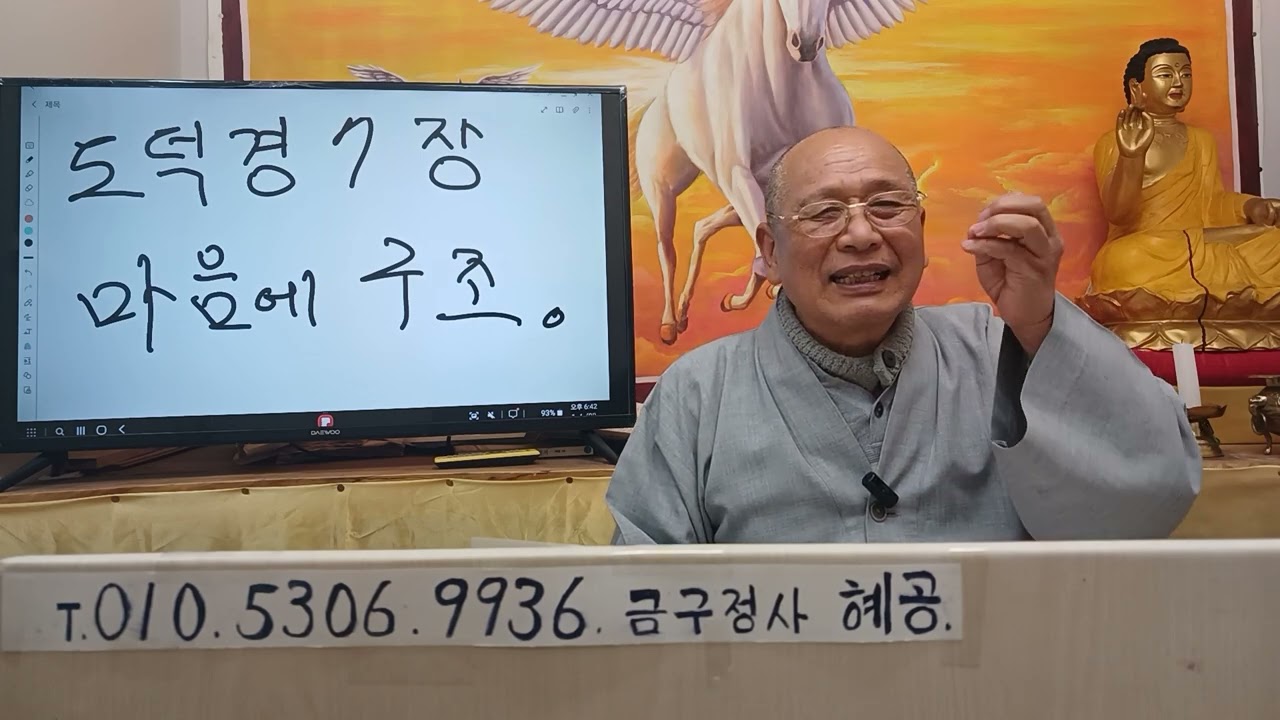 제목
도덕경 7 장
마음에 구조.
93%
오후 6:42
DAEWOO
T.010.5306.9936. 금구정사 혜공.